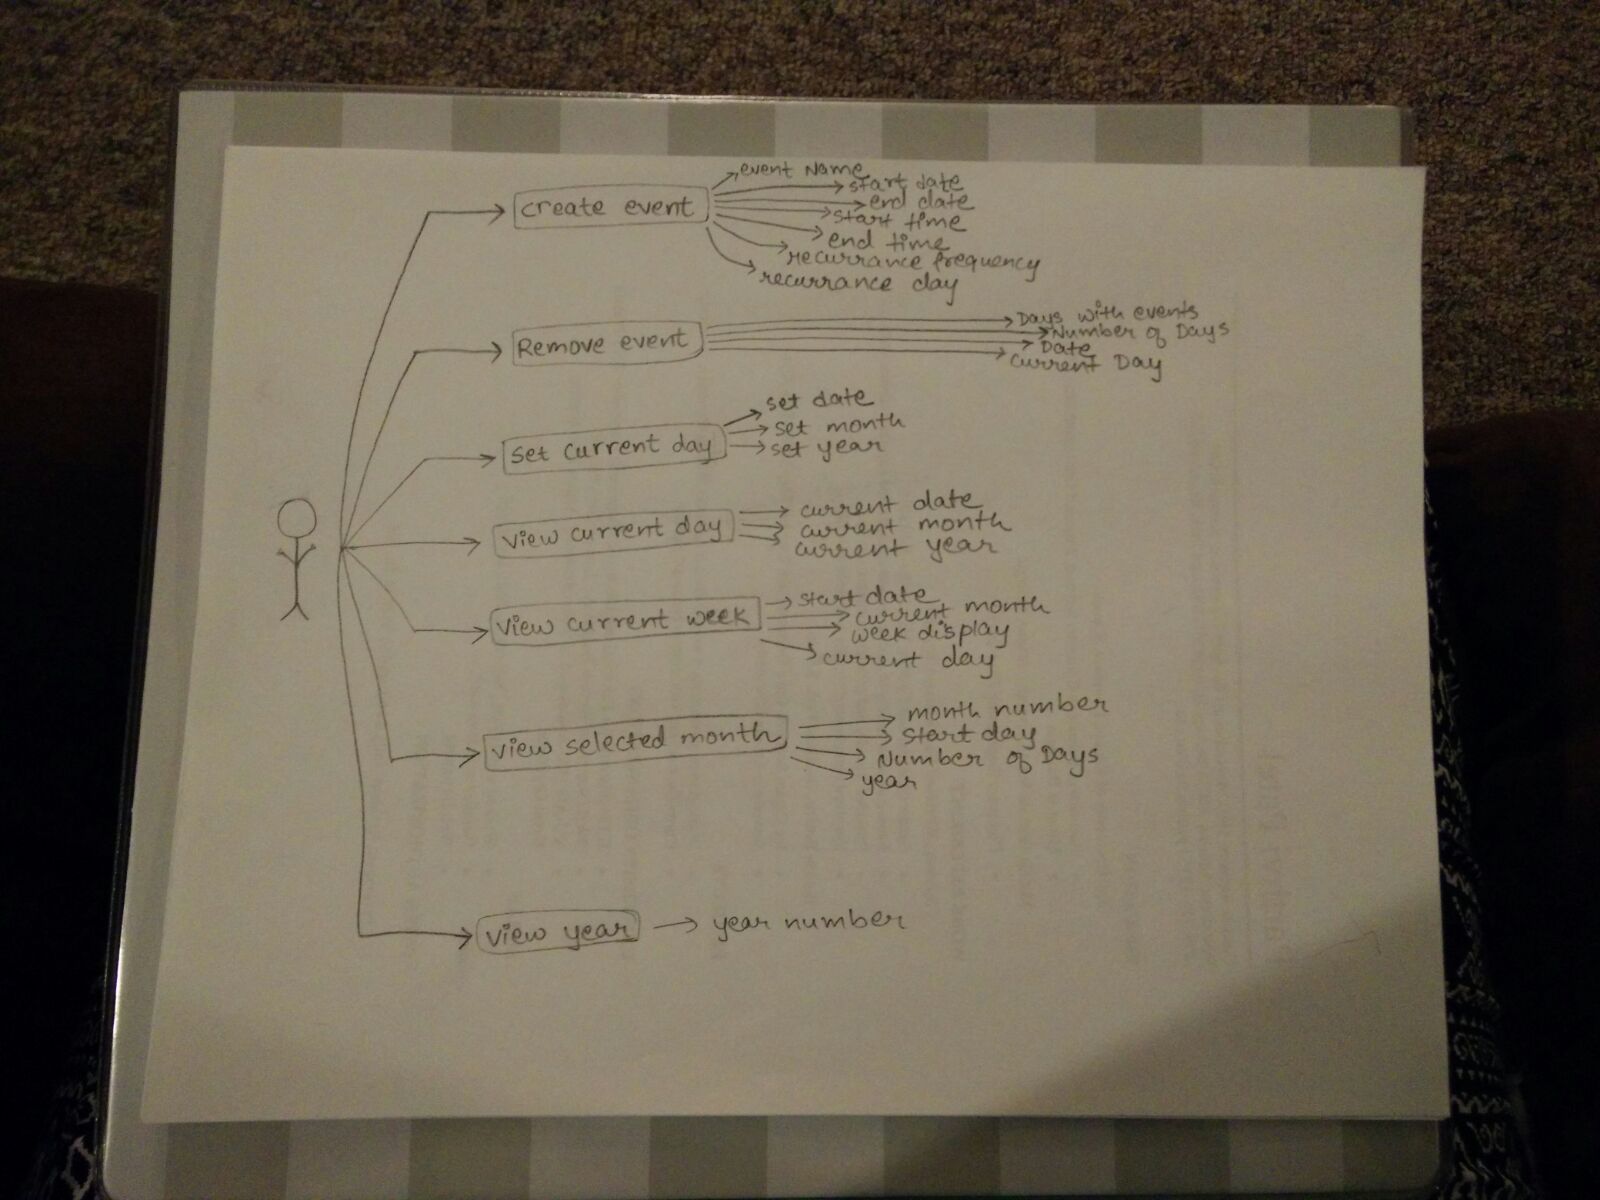 create event
event Name
start date
end date
start time
end time
recurrance frequency
recurrance day
Remove event
Days with events
Number of Days
Date
Current Day
set current day
set date
set month
set year
view current day
current date
current month
current year
view current week
start date
current month
week display
current day
view selected month
month number
start day
Number of Days
year
view year
year number